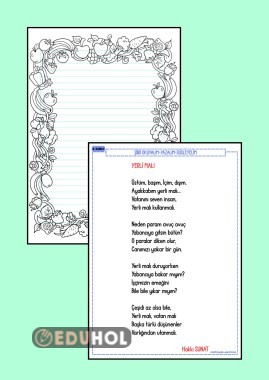 ŞİİR OKUYALIM-YAZALIM-SÜSLEYELİM
YERLİ MALI
Üstüm, başım, içim, dışım,
Ayakkabım yerli malı...
Vatanını seven insan,
Yerli malı kullanmalı.
Neden param avuç avuç
Yabancıya gitsin bütün?
O paralar diken olur,
Canımızı yakar bir gün.
Yerli malı duruyorken
Yabancıya bakar mıyım?
İşçimizin emeğini
Bile bile yıkar mıyım?
Çeşidi az olsa bile,
Yerli malı, vatan malı
Başka türlü düşünenler
Varlığından utanmalı.
Hakkı SUNAT
EDUHOL